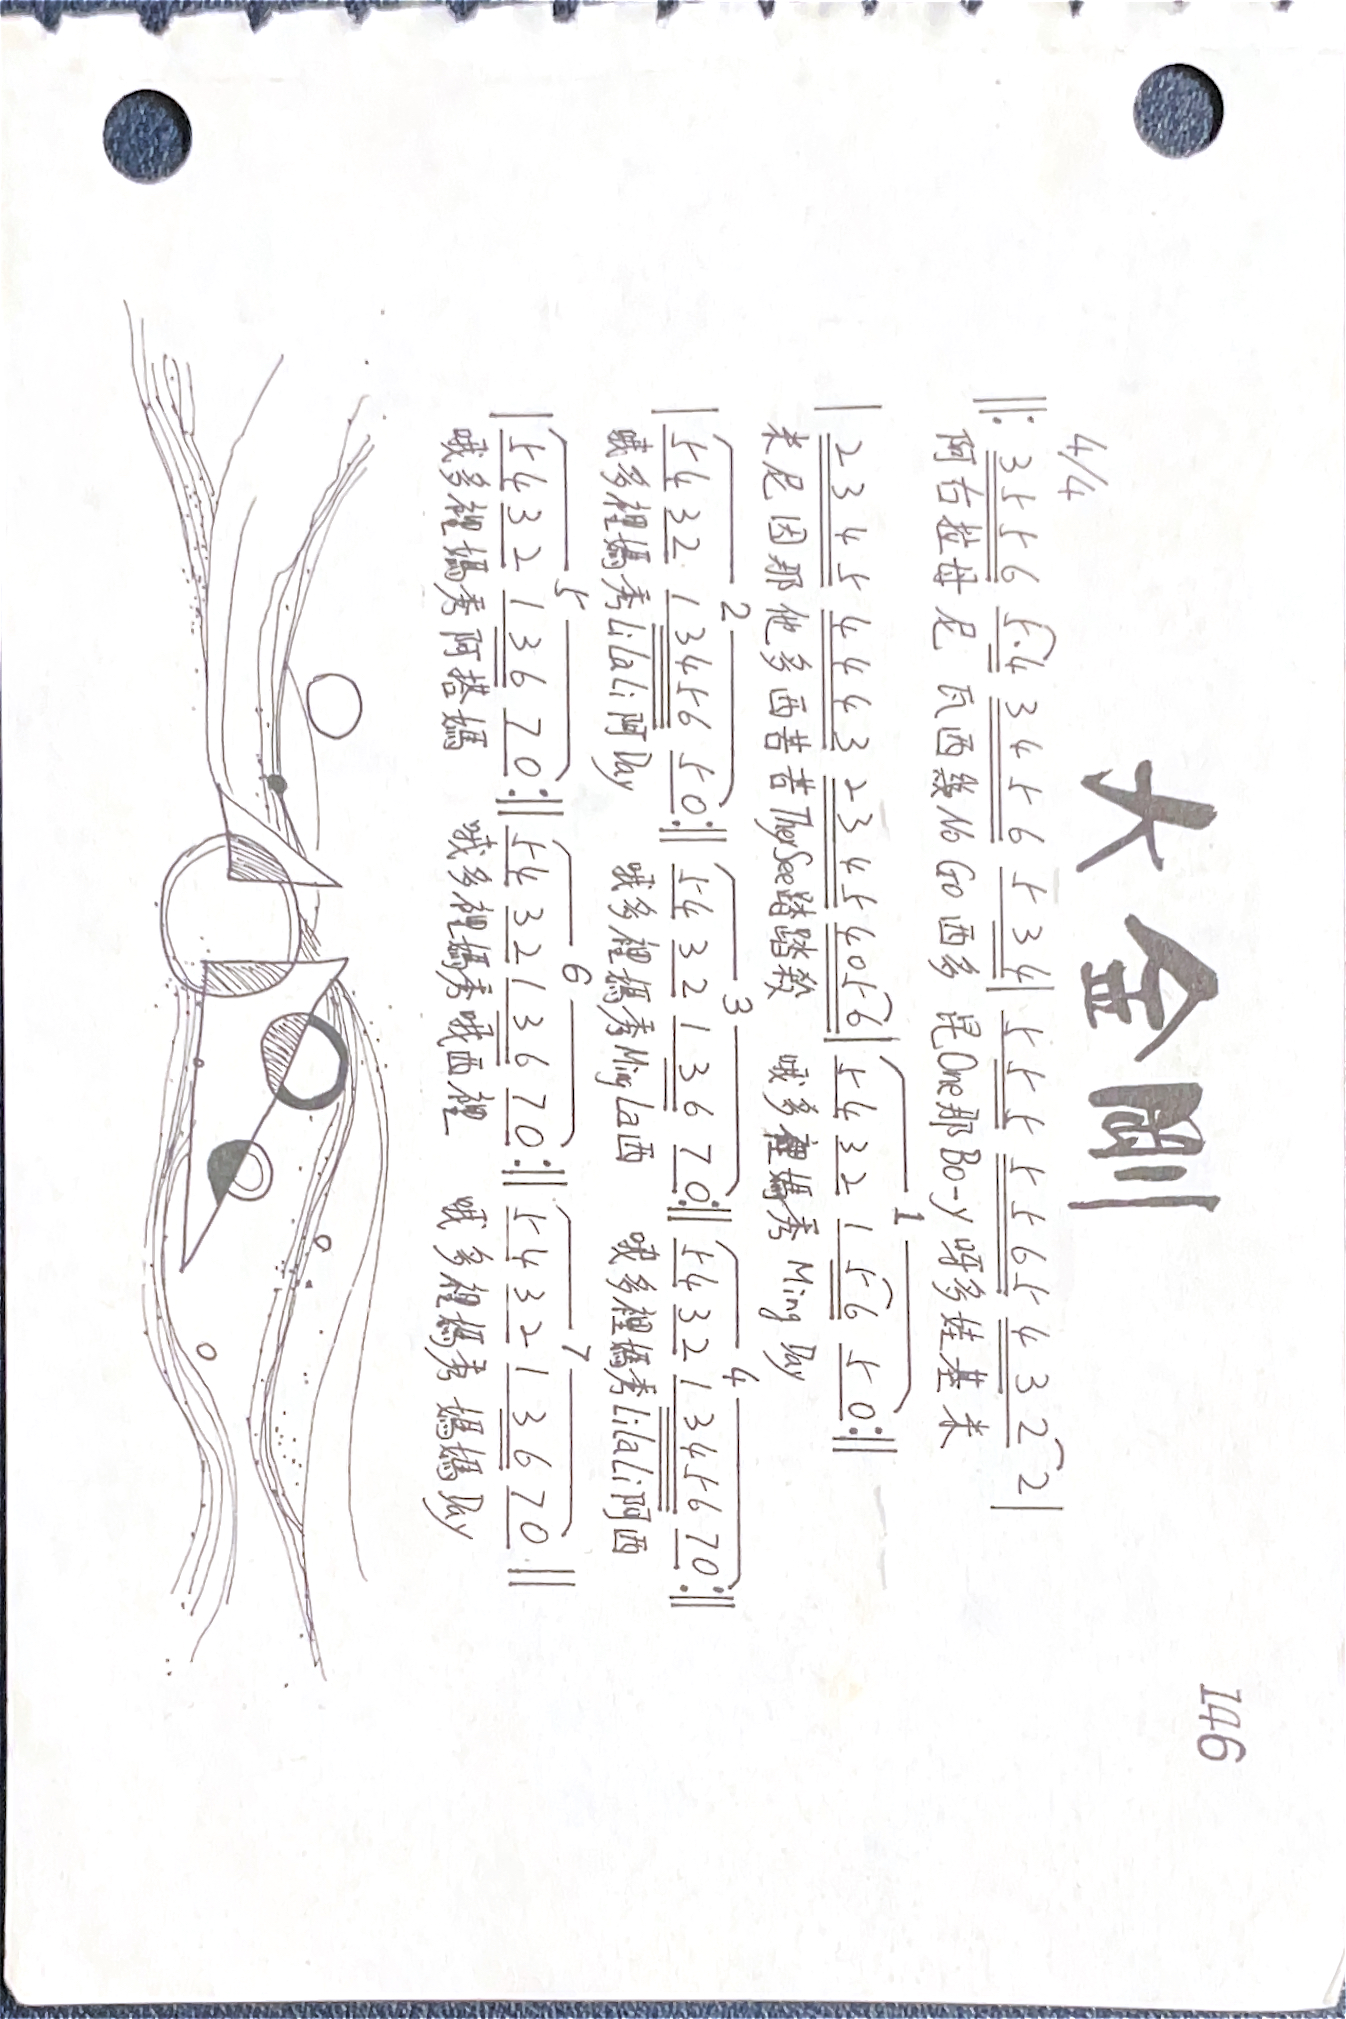 146
大金剛
4/4
‖: 3 5 5 6 5. 4 3 4 5 6 5 3 4 | 5 5 5 5 5 6 5 4 3 2 2 |
阿右拉母尼 瓦西幾 No Go 西多 昆One那Bo-y呀多娃基米
1
| 2 3 4 5 4 4 4 3 2 3 4 5 4 0 5 6 | 5 4 3 2 1 5 6 5 0 :‖
米尼因那他多西苦苦They See踏踏殺 哦多裡媽秀 Ming Day
2 3 4
| 5 4 3 2 1 3 4 5 6 5 0 :‖ 5 4 3 2 1 3 6 7 0 :‖ 5 4 3 2 1 3 4 5 6 7 0 :‖
哦多裡媽秀LiLaLi阿Day 哦多裡媽秀Ming La西 哦多裡媽秀LiLaLi阿西
5 6 7
| 5 4 3 2 1 3 6 7 0 :‖ 5 4 3 2 1 3 6 7 0 :‖ 5 4 3 2 1 3 6 7 0 ‖
哦多裡媽秀阿搭媽 哦多裡媽秀哦西裡 哦多裡媽秀媽媽Day